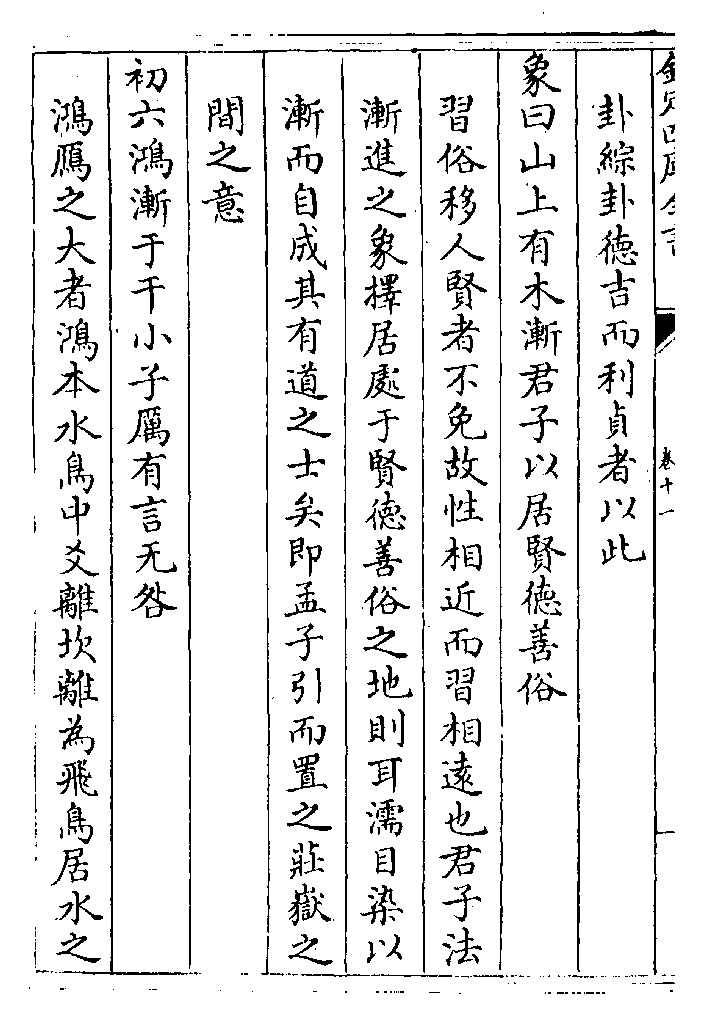 欽定四庫全書
卷十一
卦綜卦德吉而利貞者以此
象曰山上有木漸君子以居賢德善俗
習俗移人賢者不免故性相近而習相遠也君子法
漸進之象擇居處于賢德善俗之地則耳濡目染以
漸而自成其有道之士矣即孟子引而置之莊嶽之
間之意
初六鴻漸于干小子厲有言无咎
鴻鴈之大者鴻本水鳥中爻離坎離為飛鳥居水之